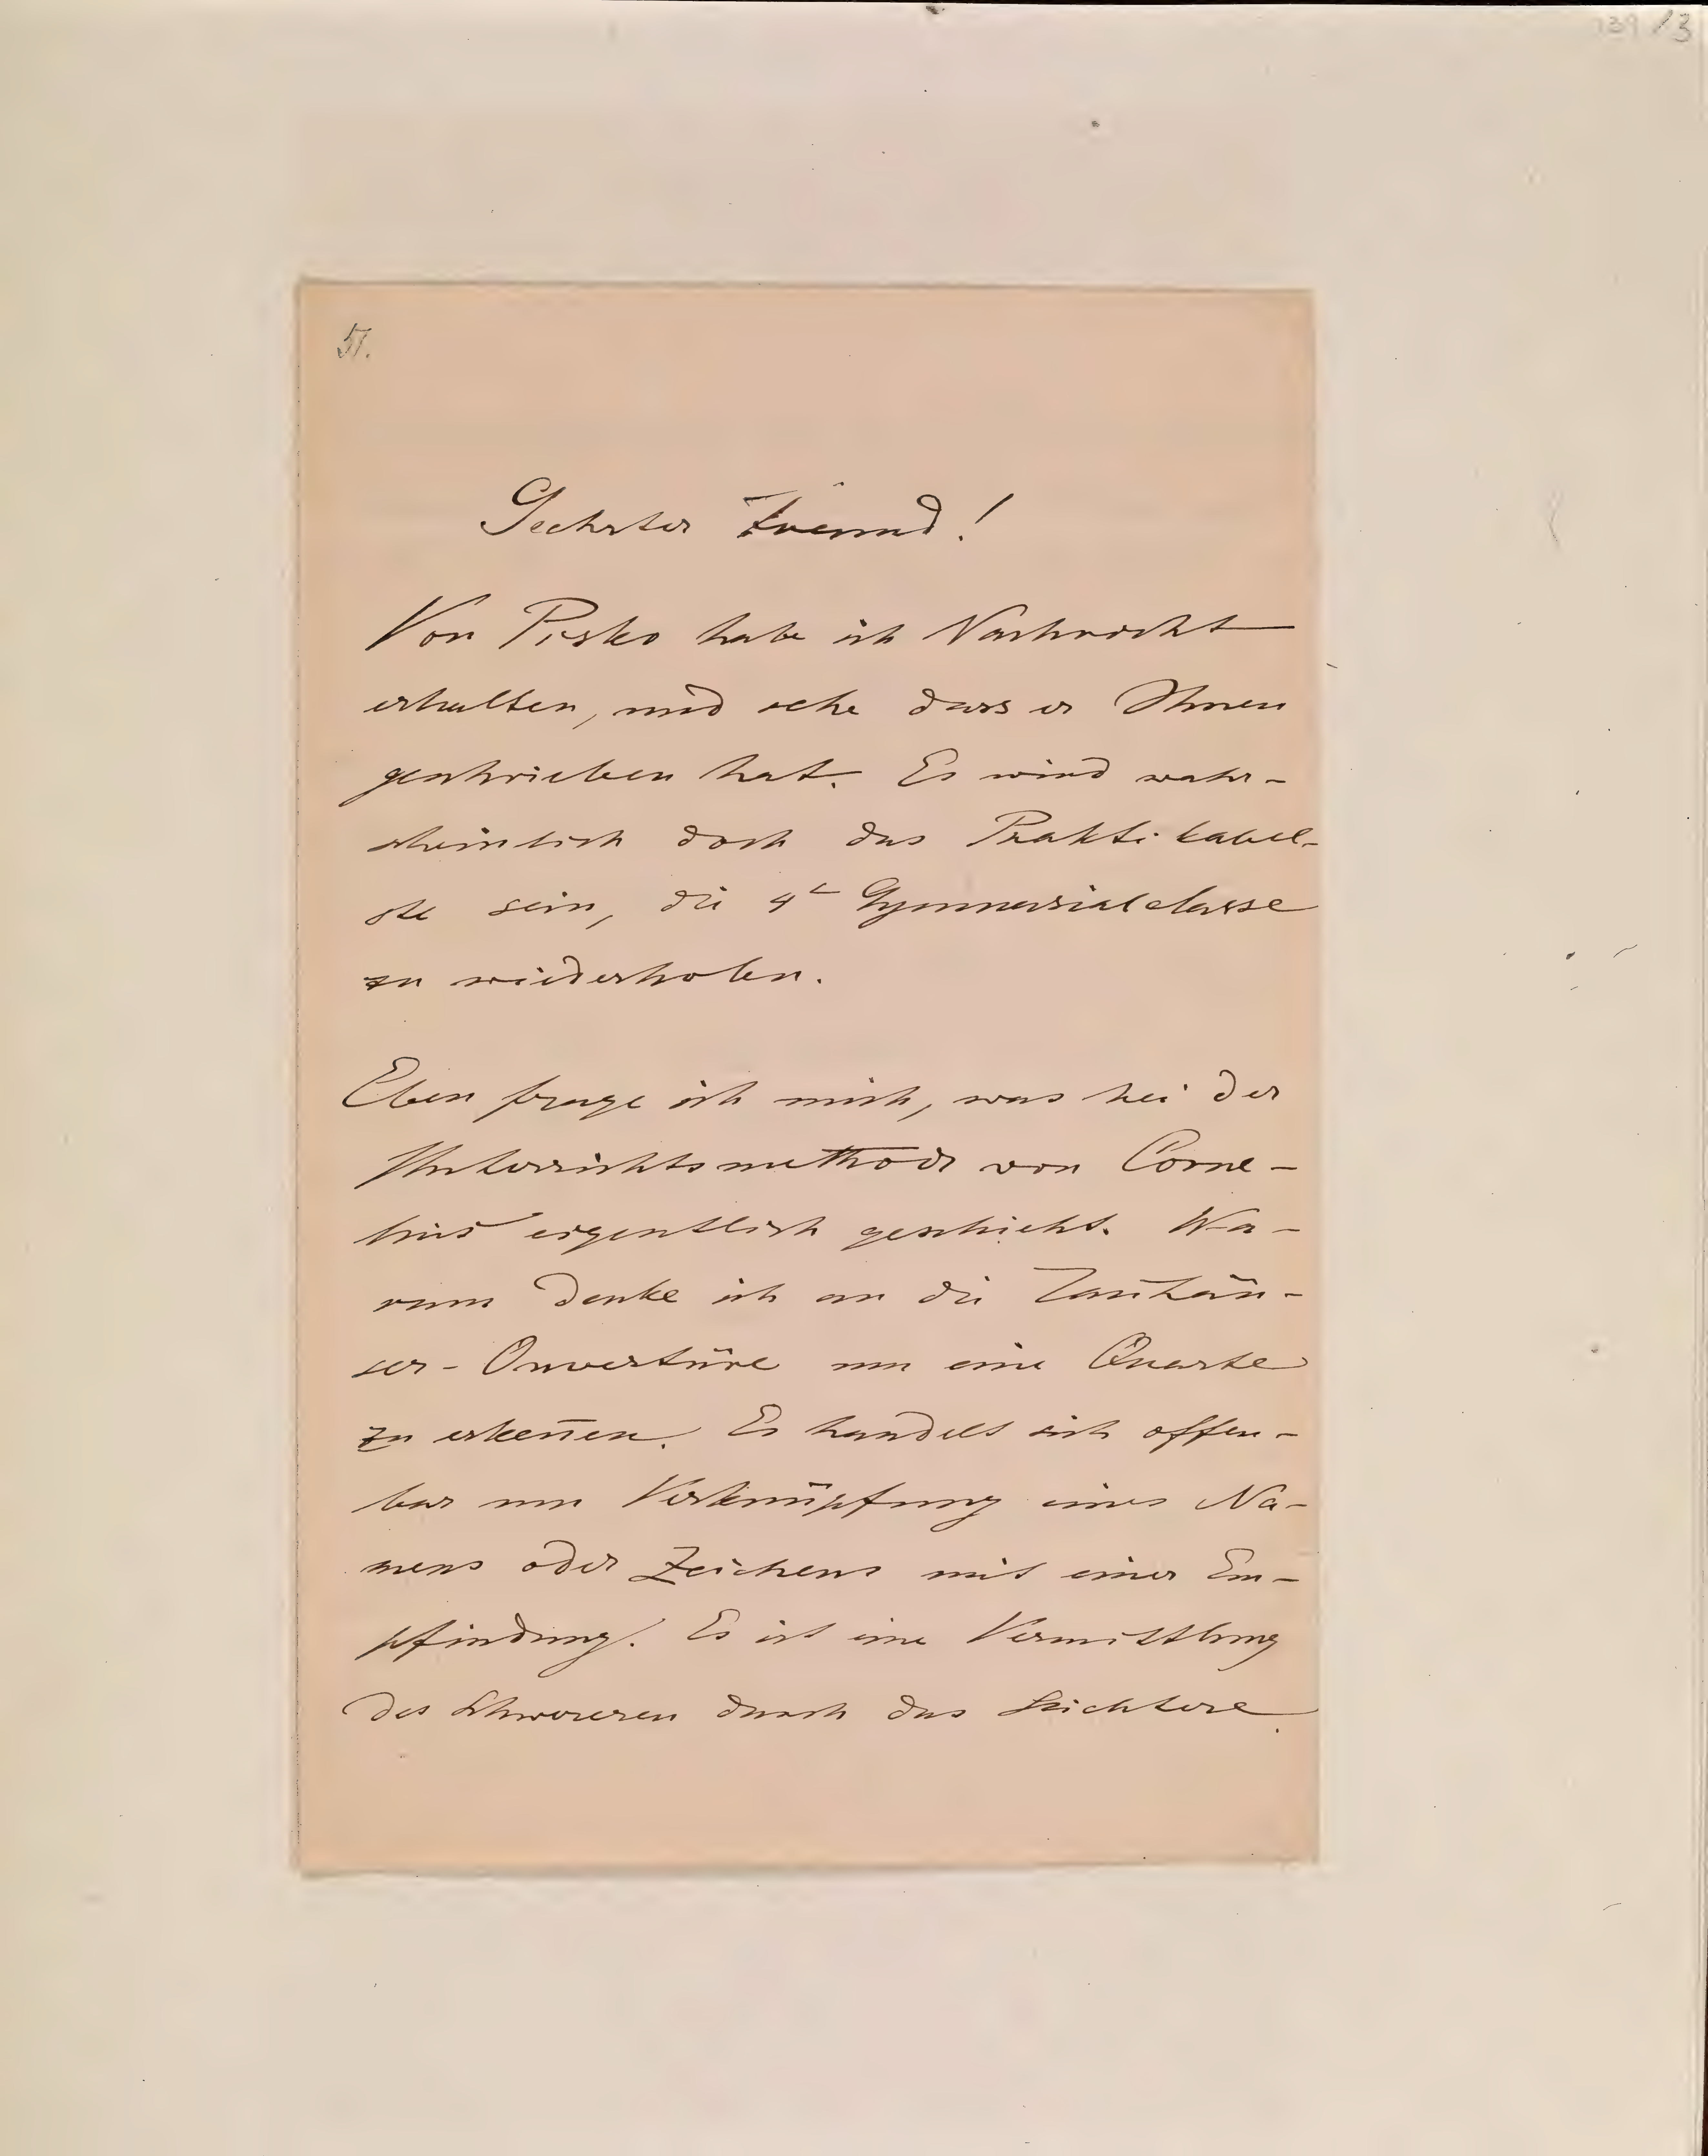 139/3
51.
Geehrter Freund!
Von Pisko habe ich Nachricht
erhalten, und sehe dass er Ihnen
geschrieben hat. Es wird wahr-
scheinlich doch das Praktikabel-
ste sein, die 4te Gymnasialclasse
zu wiederholen.
Eben frage ich mich, was bei der
Unterrichtsmethode von Corne-
lius eigentlich geschieht. Wa-
rum denke ich an die Tan̄häu-
ser-Ouvertüre um eine Quarte
zu erken̄en. Es handelt sich offen-
bar um Verknüpfung eines Na-
mens oder Zeichens mit einer Em-
pfindung. Es ist eine Vermittlung
des Schwereren durch das Leichtere.